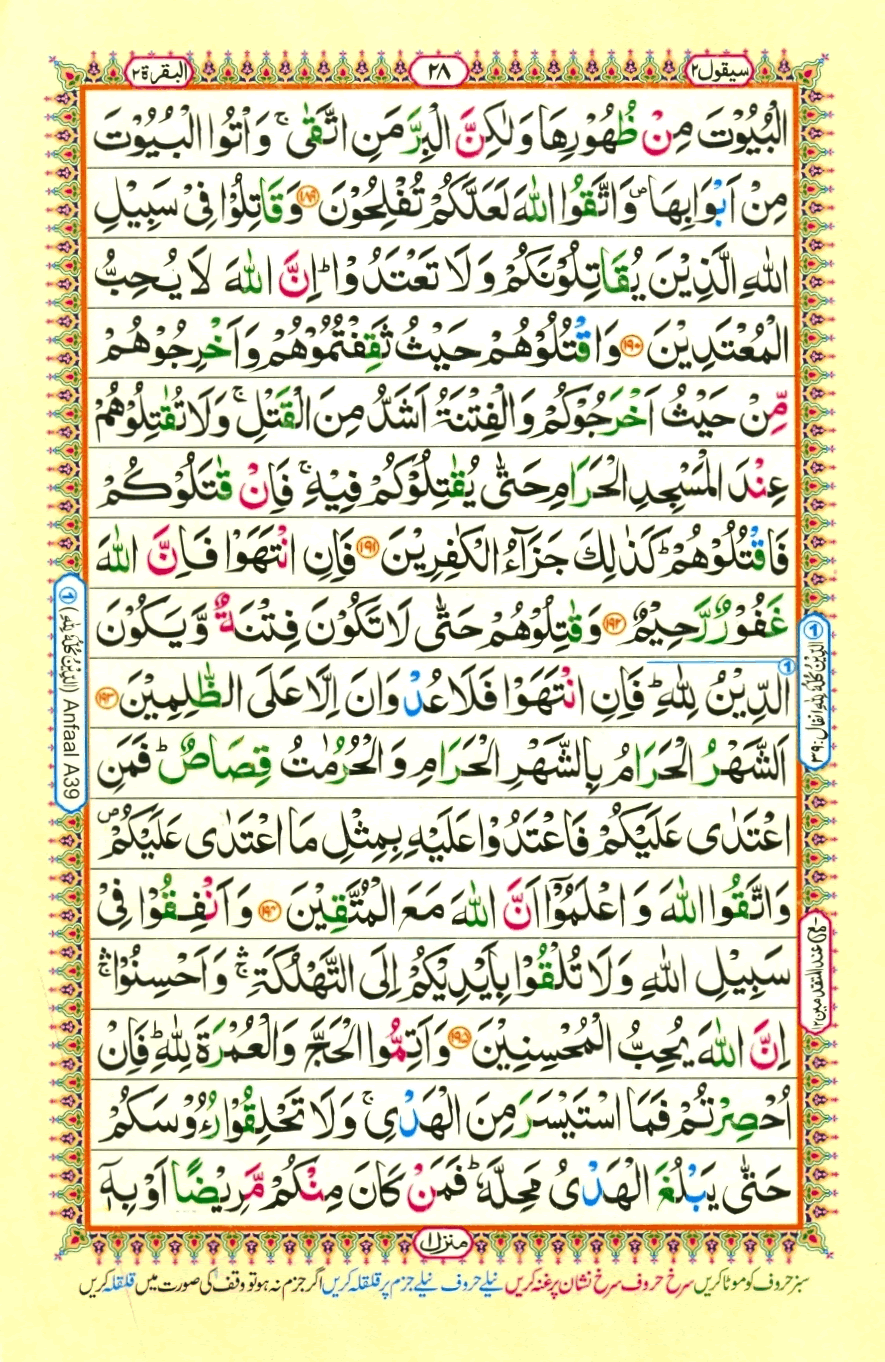 سیقول ٢
٢٨
البقرة ٢
الْبُیُوْتَ مِنْ ظُهُوْرِهَا وَلٰكِنَّ الْبِرَّ مَنِ اتَّقٰی ۚ وَاْتُوا الْبُیُوْتَ
مِنْ اَبْوَابِهَا ۪ وَاتَّقُوا اللّٰهَ لَعَلَّكُمْ تُفْلِحُوْنَ ﴿١٨٩﴾ وَقَاتِلُوْا فِیْ سَبِیْلِ
اللّٰهِ الَّذِیْنَ یُقَاتِلُوْنَكُمْ وَلَا تَعْتَدُوْا ؕ اِنَّ اللّٰهَ لَا یُحِبُّ
الْمُعْتَدِیْنَ ﴿١٩٠﴾ وَاقْتُلُوْهُمْ حَیْثُ ثَقِفْتُمُوْهُمْ وَاَخْرِجُوْهُمْ
مِّنْ حَیْثُ اَخْرَجُوْكُمْ وَالْفِتْنَةُ اَشَدُّ مِنَ الْقَتْلِ ۚ وَلَا تُقٰتِلُوْهُمْ
عِنْدَ الْمَسْجِدِ الْحَرَامِ حَتّٰی یُقٰتِلُوْكُمْ فِیْهِ ۚ فَاِنْ قٰتَلُوْكُمْ
فَاقْتُلُوْهُمْ ؕ كَذٰلِكَ جَزَآءُ الْكٰفِرِیْنَ ﴿١٩١﴾ فَاِنِ انْتَهَوْا فَاِنَّ اللّٰهَ
غَفُوْرٌ رَّحِیْمٌ ﴿١٩٢﴾ وَقٰتِلُوْهُمْ حَتّٰی لَا تَكُوْنَ فِتْنَةٌ وَّیَكُوْنَ
الدِّیْنُ لِلّٰهِ ؕ فَاِنِ انْتَهَوْا فَلَا عُدْوَانَ اِلَّا عَلَی الظّٰلِمِیْنَ ﴿١٩٣﴾
اَلشَّهْرُ الْحَرَامُ بِالشَّهْرِ الْحَرَامِ وَالْحُرُمٰتُ قِصَاصٌ ؕ فَمَنِ
اعْتَدٰی عَلَیْكُمْ فَاعْتَدُوْا عَلَیْهِ بِمِثْلِ مَا اعْتَدٰی عَلَیْكُمْ ۪
وَاتَّقُوا اللّٰهَ وَاعْلَمُوْۤا اَنَّ اللّٰهَ مَعَ الْمُتَّقِیْنَ ﴿١٩٤﴾ وَاَنْفِقُوْا فِیْ
سَبِیْلِ اللّٰهِ وَلَا تُلْقُوْا بِاَیْدِیْكُمْ اِلَی التَّهْلُكَةِ ۛۚ وَاَحْسِنُوْا ۛۚ
اِنَّ اللّٰهَ یُحِبُّ الْمُحْسِنِیْنَ ﴿١٩٥﴾ وَاَتِمُّوا الْحَجَّ وَالْعُمْرَةَ لِلّٰهِ ؕ فَاِنْ
اُحْصِرْتُمْ فَمَا اسْتَیْسَرَ مِنَ الْهَدْیِ ۚ وَلَا تَحْلِقُوْا رُءُوْسَكُمْ
حَتّٰی یَبْلُغَ الْهَدْیُ مَحِلَّهٗ ؕ فَمَنْ كَانَ مِنْكُمْ مَّرِیْضًا اَوْ بِهٖۤ
١ الدِّیْنُ كُلُّهٗ لِلّٰهِ انفال: ٣٩
مع عند المتقدمین ١٢
١ (الدِّیْنُ كُلُّهٗ لِلّٰهِ) Anfaal A39
منزل ١
سبز حروف کو موٹا کریں سرخ حروف سرخ نشان پر غنہ کریں نیلے حروف نیلے جزم پر قلقلہ کریں اگر جزم نہ ہو تو وقف کی صورت میں قلقلہ کریں